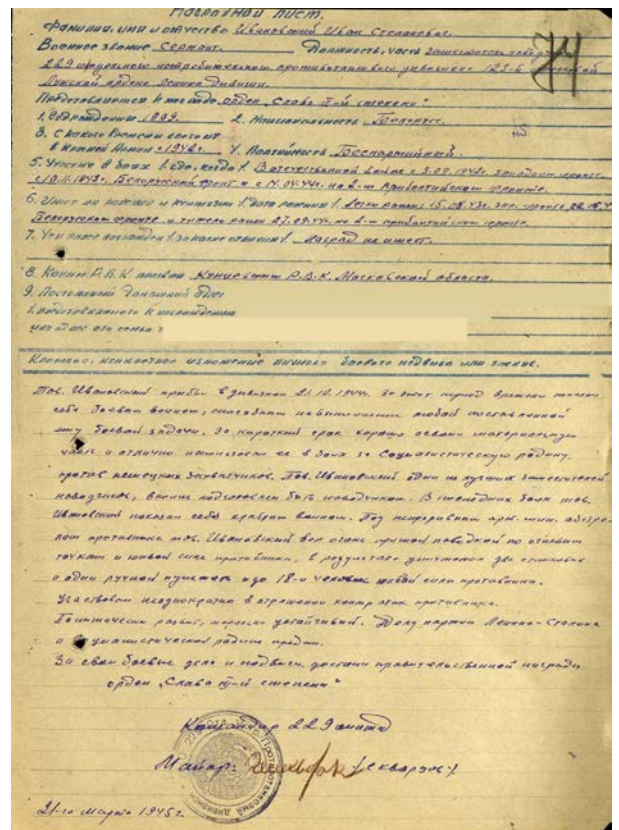 Наградной лист.
Фамилия, имя и отчество Ивановский Иван Степанович.
Военное звание Сержант. Должность, часть заместитель наводчика
74
229 отдельного истребительного противотанкового дивизиона 123-й стрелковой
Лужской ордена Ленина дивизии.
Представляется к награде орден „Слава III-й степени“
1. Год рождения 1909. 2. Национальность Белорус.
3. С какого времени состоит
в Красной Армии с 1942 г. 4. Партийность Беспартийный.
5. Участие в боях /где, когда/. В отечественной войне с 5.09.1942г. Западном фронте.
с 10.11.1943г. Белорусский фронт и с 14.04.44г. на 2-м прибалтийском фронте.
6. Имеет ли ранения и контузии /дата ранения/. Легко ранен 15.08.43г. зап. фронте,
Белорусском фронте и тяжело ранен 27.09.44г. на 2-м прибалтийском фронте.
7. Чем ранее награжден /за какие отличия/. Наград не имеет.
8. Каким Р.В.К. призван Кунцевским Р.В.К. Московской области.
9. Постоянный домашний адрес
/. представляемого к награждению
или адрес его семьи
Краткое, конкретное изложение личного боевого подвига или заслуг.
Тов. Ивановский прибыл в дивизион 21.10.1944г. За этот период времени показал
себя боевым воином, способным на выполнение любой поставленной
ему боевой задачи. За короткий срок хорошо освоил материальную
часть и отлично использовал ее в боях за Социалистическую родину,
против немецких захватчиков. Тов. Ивановский один из лучших заместителей
наводчиков, вполне подготовлен быть наводчиком. В последних боях тов.
Ивановский показал себя храбрым воином. Под непрерывным арт. мин. обстре-
лом противника тов. Ивановский вел огонь прямой наводкой по огневым
точкам и живой силе противника, в результате уничтожил два станковых
и один ручной пулемет и до 18-и человек живой силы противника.
Участвовал неоднократно в отражении контр атак противника.
Политически развит, морально устойчивый. Делу партии Ленина-Сталина
и социалистической родине предан.
За свои боевые дела и подвиги достоин правительственной награды
орден „Слава III-й степени“
Командир 229 оиптд
Майор: /Скварук/.
21-го марта 1945 г.